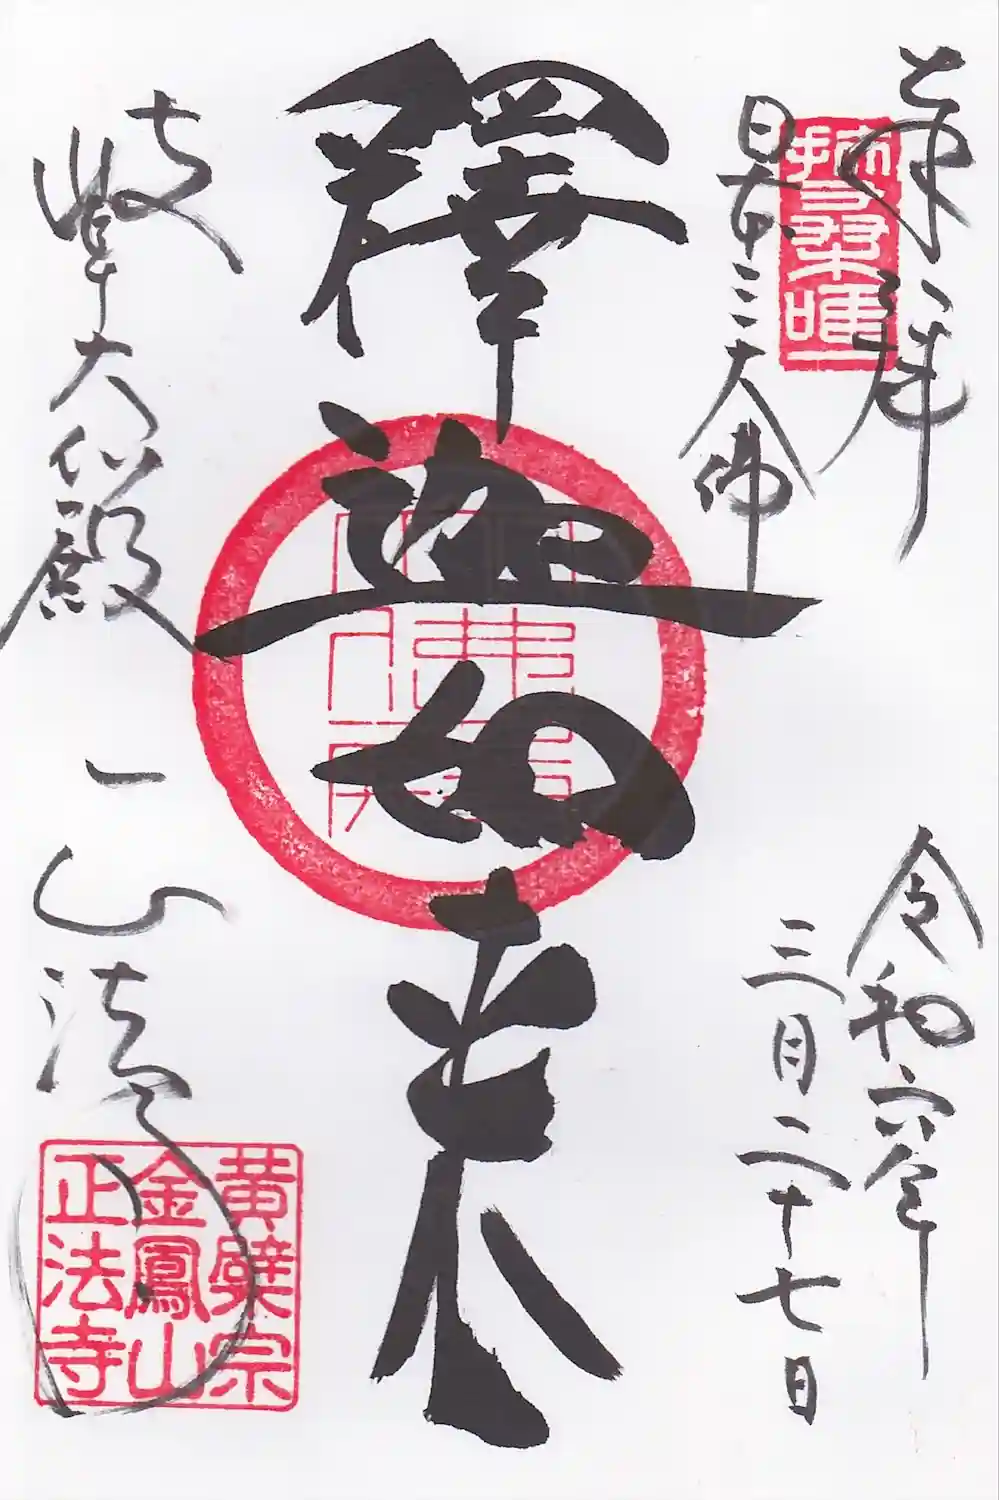 奉拝
日本三大佛
令和六年
三月二十七日
釋迦如来
岐阜大仏殿
一山
黄檗宗
金鳳山
正法寺